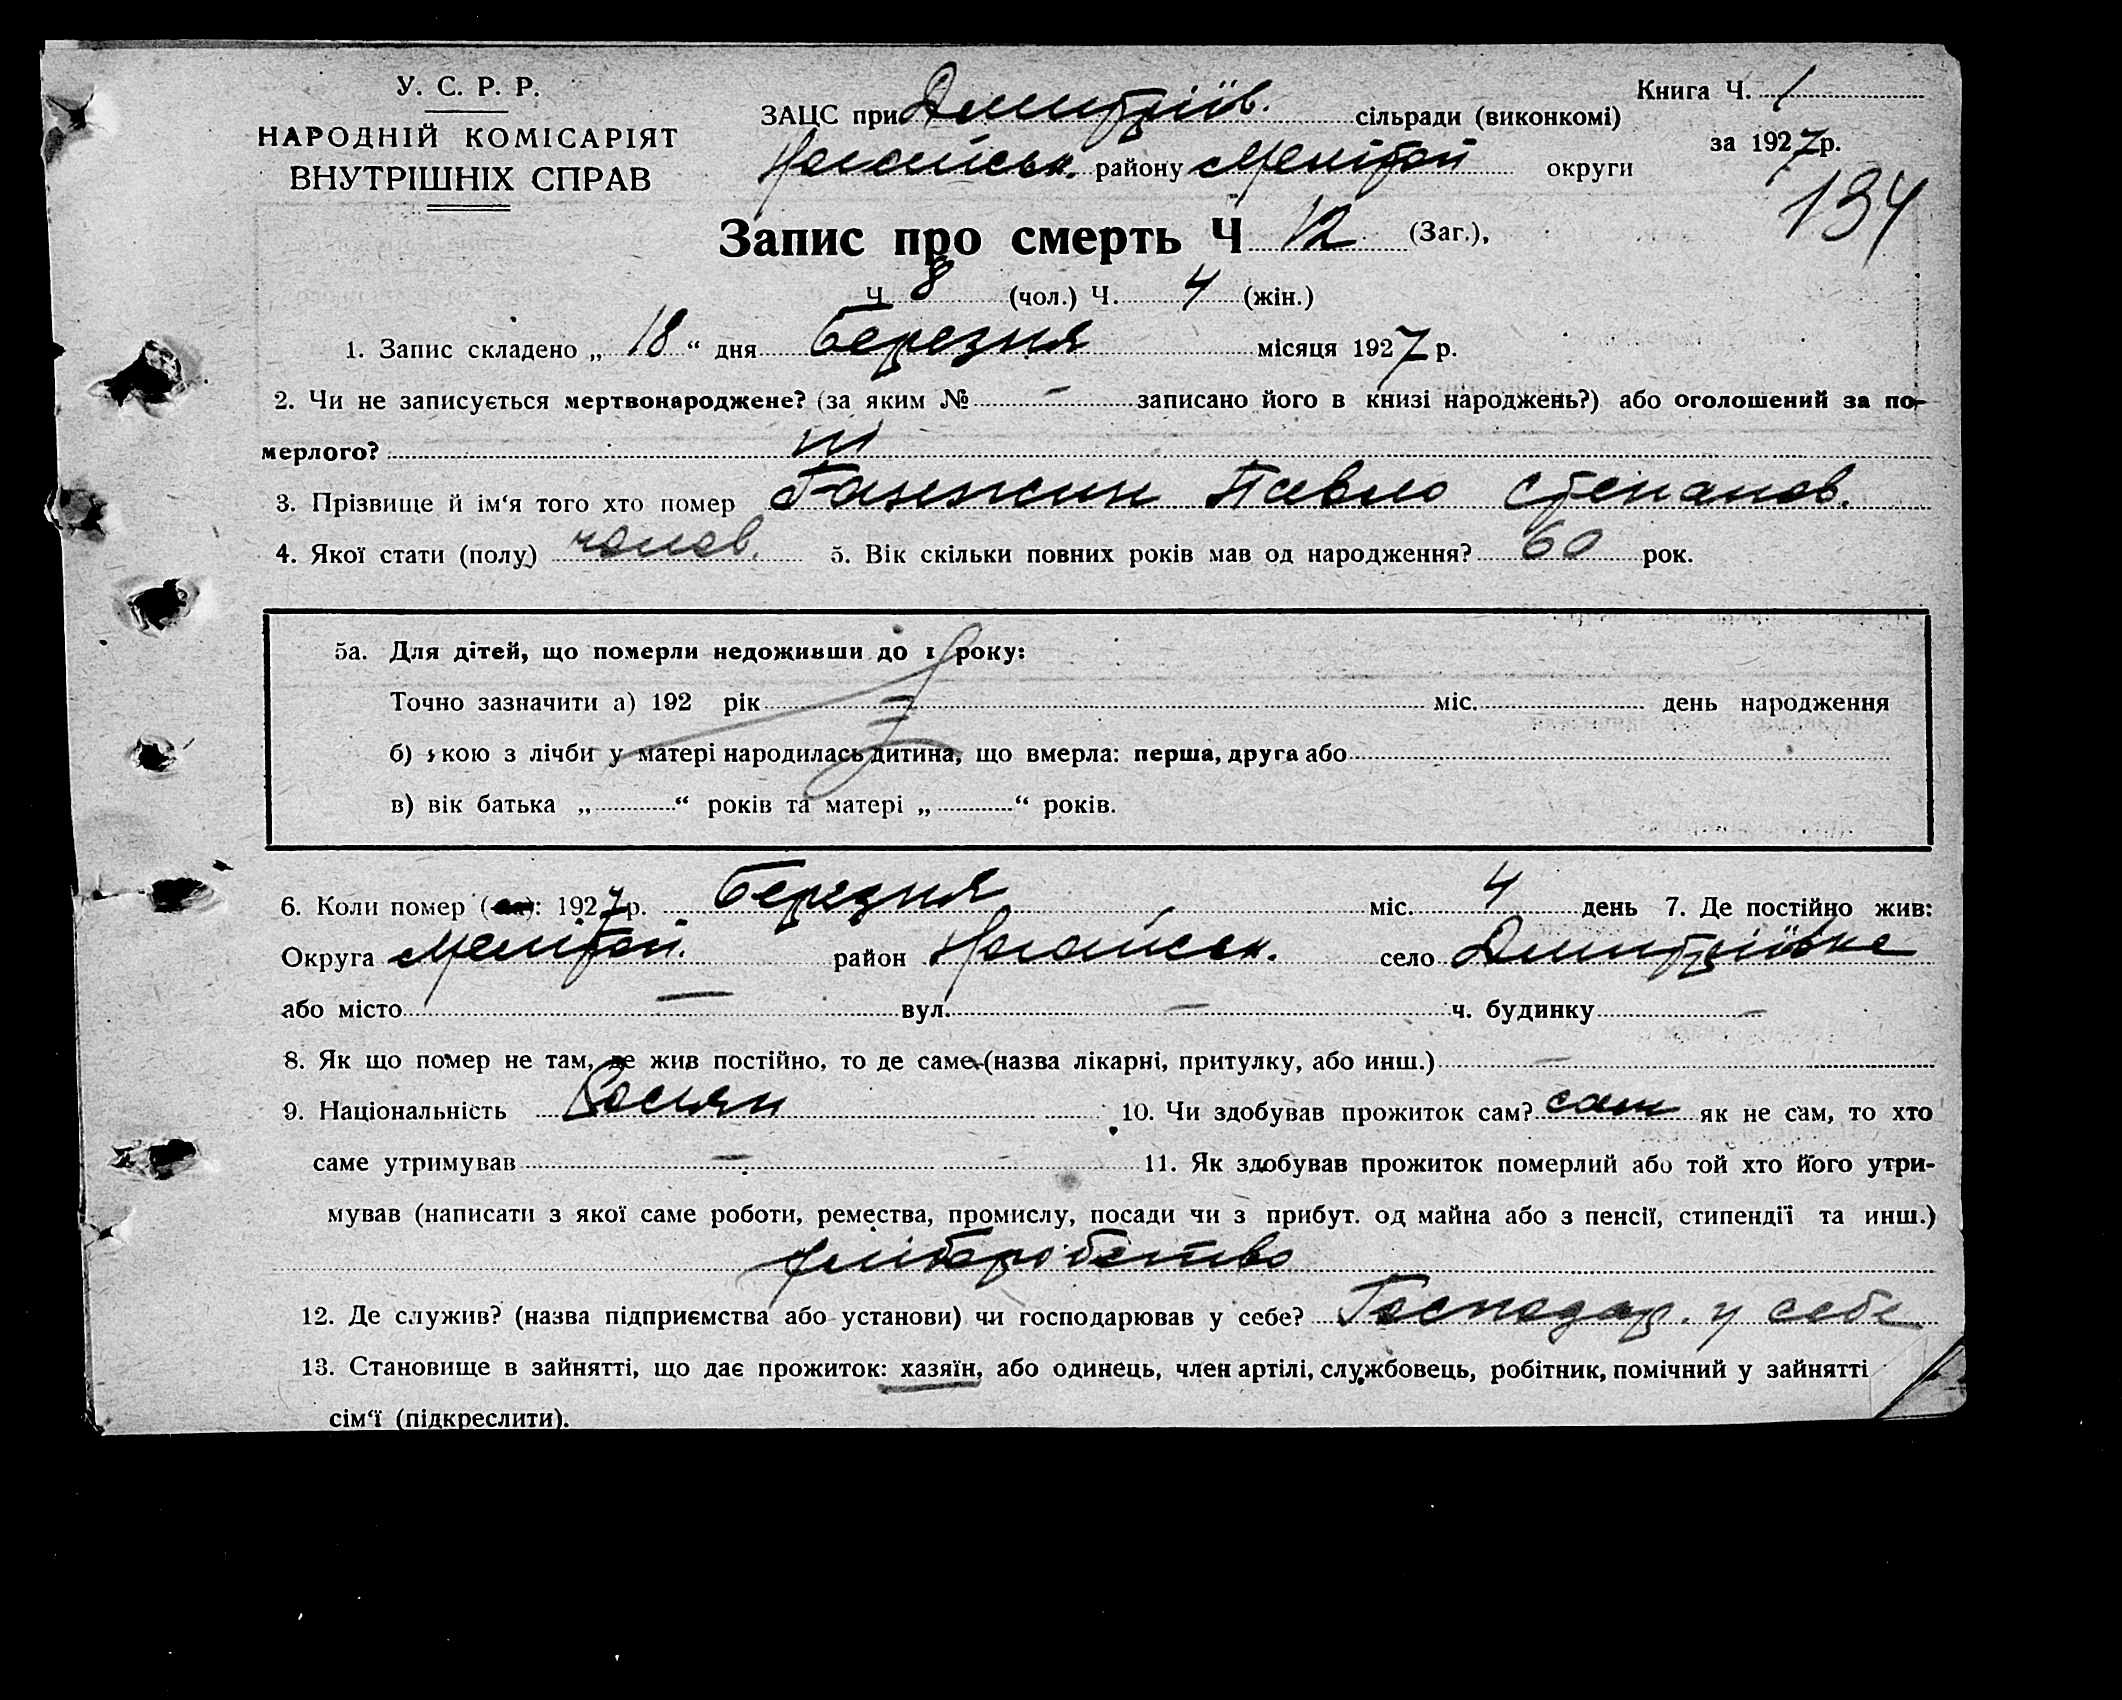 У. С. Р. Р.
НАРОДНІЙ КОМІСАРІЯТ
ВНУТРІШНІХ СПРАВ
ЗАЦС при Дмитріїв. сільради (виконкомі)
Ногайськ. району Мелітоп округи
Книга Ч. 1
за 1927 р.
134
Запис про смерть Ч 12 (Заг.),
Ч 8 (чол.) Ч. 4 (жін.)
1. Запис складено „ 18 “ дня Березня місяця 1927 р.
2. Чи не записується мертвонароджене? (за яким № – записано його в книзі народжень?) або оголошений за по-
мерлого? ні
3. Прізвище й ім‘я того хто помер Ганжин Павло Степанов.
4. Якої стати (полу) чолов. 5. Вік скільки повних років мав од народження? 60 рок.
5а. Для дітей, що померли недоживши до 1 року:
Точно зазначити а) 192 рік міс. день народження
б) якою з лічби у матері народилась дитина, що вмерла: перша, друга або
в) вік батька „ “ років та матері „ “ років.
6. Коли помер ( ): 1927 р. Березня міс. 4 день 7. Де постійно жив:
Округа Мелітоп. район Ногайськ. село Дмитріївка
або місто — вул. — ч. будинку —
8. Як що помер не там, де жив постійно, то де саме (назва лікарні, притулку, або инш.) —
9. Національність Росіян 10. Чи здобував прожиток сам? сам як не сам, то хто
саме утримував — 11. Як здобував прожиток померлий або той хто його утри-
мував (написати з якої саме роботи, ремества, промислу, посади чи з прибут. од майна або з пенсії, стипендії та инш.)
хліборобство
12. Де служив? (назва підприємства або установи) чи господарював у себе? Господар. у себе
13. Становище в зайнятті, що дає прожиток: хазяїн, або одинець, член артілі, службовець, робітник, помічний у зайнятті
сім‘ї (підкреслити).